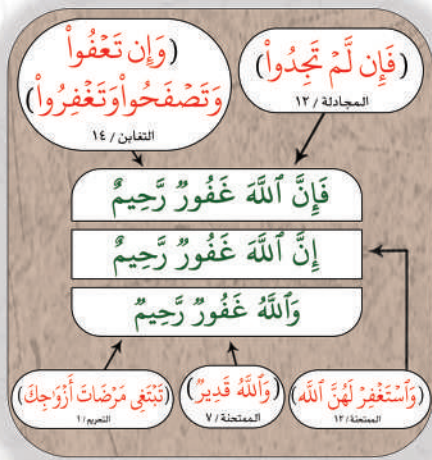 (فَإِن لَّمْ تَجِدُوا۟)
المجادلة / ١٢
(وَإِن تَعْفُوا۟
وَتَصْفَحُوا۟ وَتَغْفِرُوا۟)
التغابن / ١٤
فَإِنَّ ٱللَّهَ غَفُورٌ رَّحِيمٌ
إِنَّ ٱللَّهَ غَفُورٌ رَّحِيمٌ
وَٱللَّهُ غَفُورٌ رَّحِيمٌ
(وَٱسْتَغْفِرْ لَهُنَّ ٱللَّه)
الممتحنة / ١٢
(وَٱللَّهُ قَدِيرٌ)
الممتحنة / ٧
(تَبْتَغِى مَرْضَاتَ أَزْوَٰجِكَ)
التحريم / ١